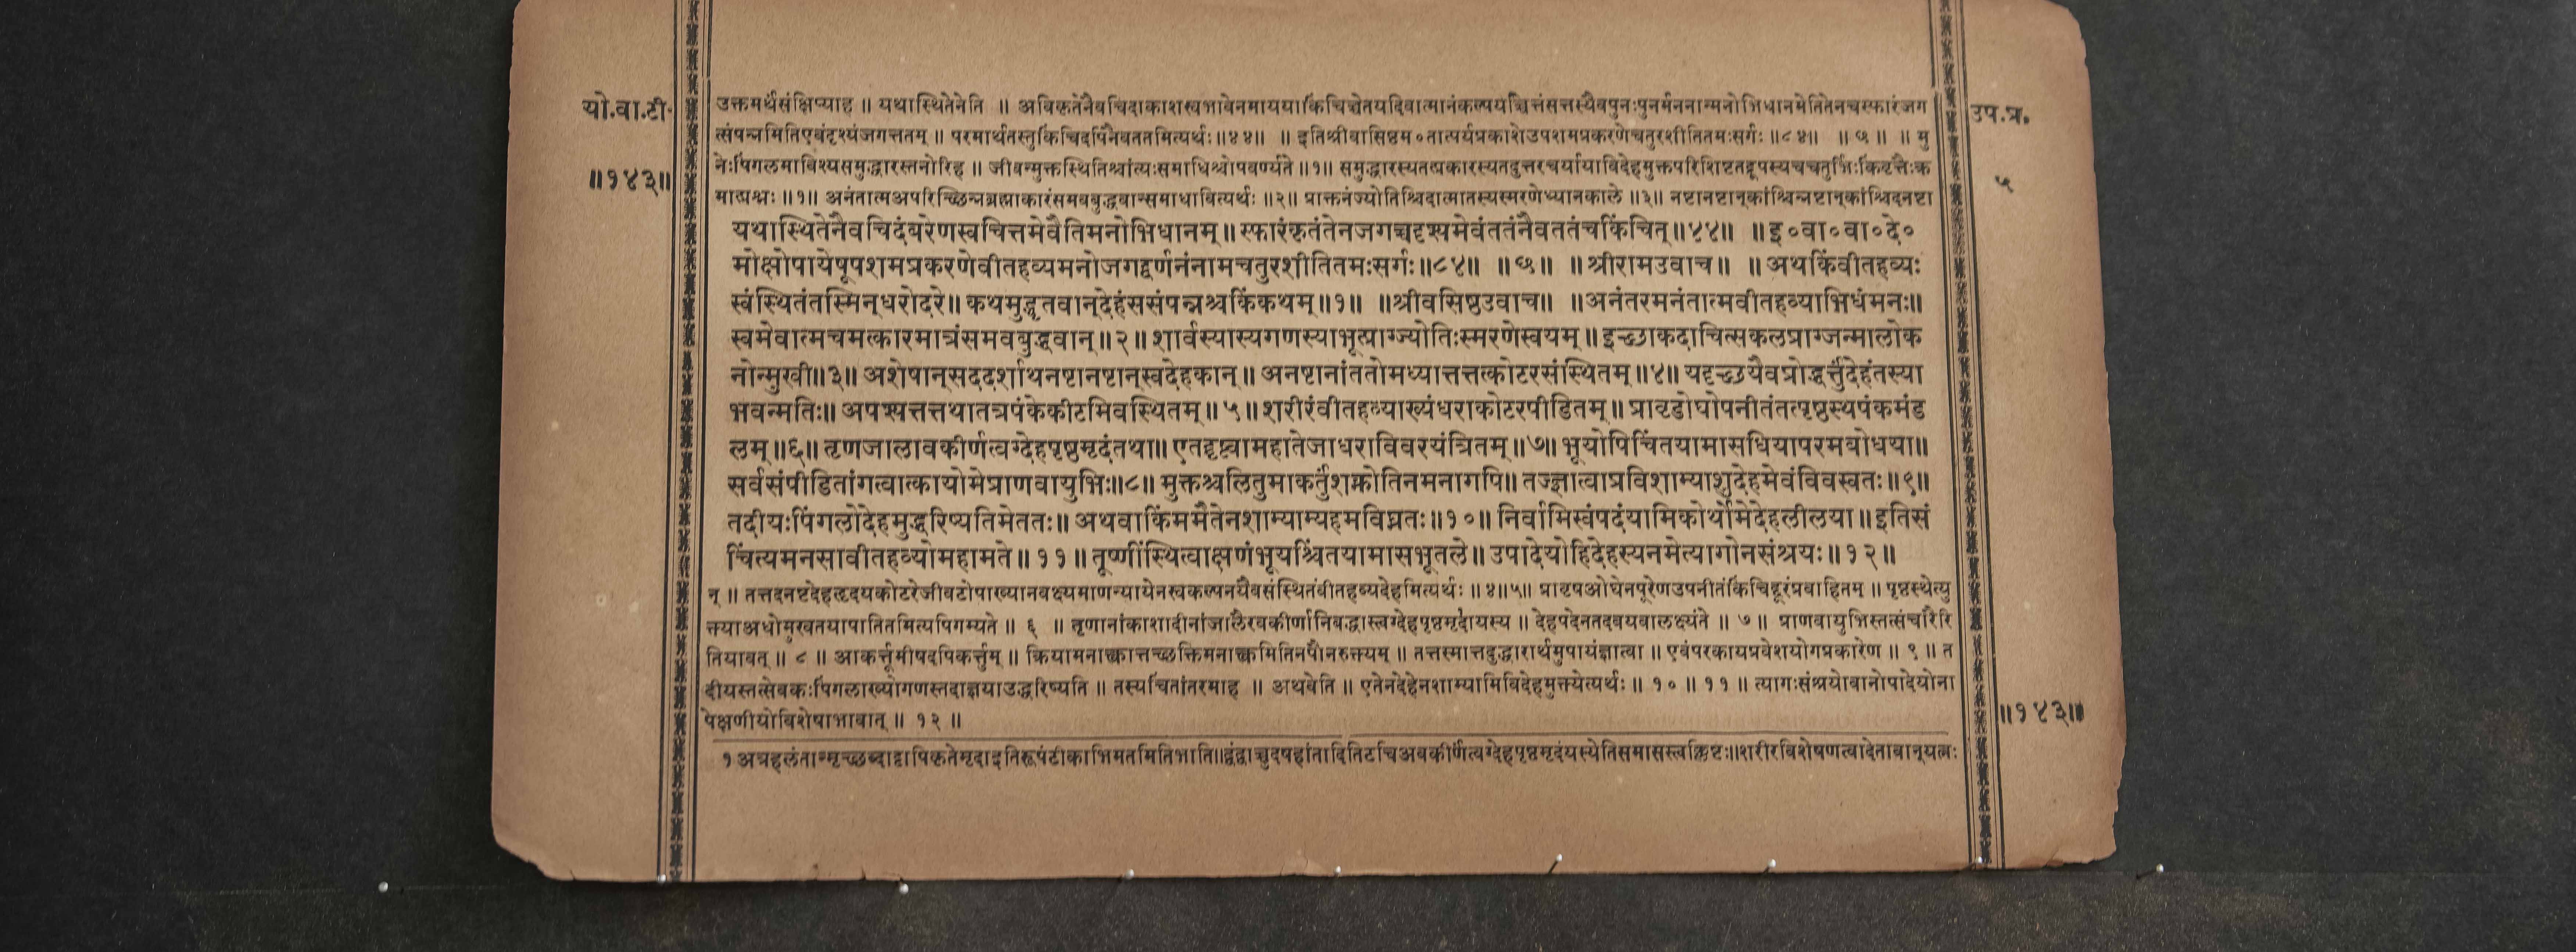 यो.वा.टी.
॥१४३॥
उप.प्र.
५
उक्तमर्थसंक्षिप्याह ॥ यथास्थितेनेति ॥ अविकृतेनैवचिदाकाशस्वभावेनमाययाकिंचिच्चेतयदिवात्मानंकल्पयच्चित्तंसत्तस्यैवपुनःपुनर्मननान्मनोभिधानमेतितेनचस्फारंजग
त्संपन्नमितिएवंदृश्यंजगत्ततम् ॥ परमार्थतस्तुकिंचिदपिनैवततमित्यर्थः॥४४॥ ॥ इतिश्रीवासिष्ठम०तात्पर्यप्रकाशेउपशमप्रकरणेचतुरशीतितमःसर्गः॥८४॥ ॥ छ ॥ ॥ मु
नेःपिंगलमाविश्यसमुद्धारस्तनोरिह ॥ जीवन्मुक्तस्थितिश्चांत्यःसमाधिश्चोपवर्ण्यते ॥१॥ समुद्धारस्यतत्प्रकारस्यतदुत्तरचर्यायाविदेहमुक्तपरिशिष्टतद्रूपस्यचचतुर्भिःकिंवृत्तैःक्र
मात्प्रश्नः ॥१॥ अनंतात्मअपरिच्छिन्नब्रह्माकारंसमवबुद्धवान्समाधावित्यर्थः ॥२॥ प्राक्तनंज्योतिश्चिदात्मातस्यस्मरणेध्यानकाले ॥३॥ नष्टानष्टान्कांश्चिन्नष्टान्कांश्चिदनष्टा
यथास्थितेनैवचिदंबरेणस्वचित्तमेवैतिमनोभिधानम् ॥ स्फारंकृतंतेनजगच्चदृश्यमेवंततंनैवततंचकिंचित् ॥४४॥ ॥ इ०वा०वा०दे०
मोक्षोपायेषूपशमप्रकरणेवीतहव्यमनोजगद्वर्णनंनामचतुरशीतितमःसर्गः॥८४॥ ॥ छ ॥ ॥ श्रीरामउवाच ॥ ॥ अथकिंवीतहव्यः
स्वंस्थितंतस्मिन्धरोदरे॥ कथमुद्धृतवान्देहंससंपन्नश्चकिंकथम् ॥१॥ ॥श्रीवसिष्ठउवाच॥ ॥अनंतरमनंतात्मवीतहव्याभिधंमनः॥
स्वमेवात्मचमत्कारमात्रंसमवबुद्धवान् ॥२॥ शार्वस्यास्यगणस्याभूत्प्राग्ज्योतिःस्मरणेस्वयम् ॥ इच्छाकदाचित्सकलप्राग्जन्मालोक
नोन्मुखी॥३॥ अशेषान्सददर्शाथनष्टानष्टान्स्वदेहकान् ॥ अनष्टानांततोमध्यात्तत्तत्कोटरसंस्थितम् ॥४॥ यदृच्छयैवप्रोद्धर्त्तुंदेहंतस्या
भवन्मतिः॥ अपश्यत्तत्तथातत्रपंकेकीटमिवस्थितम् ॥५॥ शरीरंवीतहव्याख्यंधराकोटरपीडितम् ॥ प्रावृडोघोपनीतंतत्पृष्ठस्थपंकमंड
लम् ॥६॥ तृणजालावकीर्णत्वग्देहपृष्ठमृदंतथा॥ एतद्दृष्ट्वामहातेजाधराविवरयंत्रितम् ॥७॥ भूयोपिचिंतयामासधियापरमबोधया॥
सर्वसंपीडितांगत्वात्कायोमेप्राणवायुभिः॥८॥ मुक्तश्चलितुमाकर्तुंशक्नोतिनमनागपि॥ तज्ज्ञात्वाप्रविशाम्याशुदेहमेवंविवस्वतः॥९॥
तदीयःपिंगलोदेहमुद्धरिष्यतिमेततः॥ अथवाकिंममैतेनशाम्याम्यहमविघ्नतः॥१०॥ निर्वामिस्वंपदंयामिकोर्थोमेदेहलीलया ॥ इतिसं
चिंत्यमनसावीतहव्योमहामते ॥११॥ तूष्णींस्थित्वाक्षणंभूयश्चिंतयामासभूतले॥ उपादेयोहिदेहस्यनमेत्यागोनसंश्रयः॥१२॥
न् ॥ तत्तदनष्टदेहहृदयकोटरेजीवटोपाख्यानवक्ष्यमाणन्यायेनस्वकल्पनयैवसंस्थितंवीतहव्यदेहमित्यर्थः ॥४॥५॥ प्रावृषओघेनपूरेणउपनीतंकिंचिद्दूरंप्रवाहितम् ॥ पृष्ठस्थेत्यु
क्त्याअधोमुखतयापातितमित्यपिगम्यते ॥ ६ ॥ तृणानांकाशादीनांजालैरवकीर्णानिबद्धास्त्वग्देहपृष्ठमृदोयस्य ॥ देहपदेनतदवयवालक्ष्यंते ॥ ७ ॥ प्राणवायुभिस्तत्संचारैरि
तियावत् ॥ ८ ॥ आकर्त्तुमीषदपिकर्त्तुम् ॥ क्रियामनाक्त्वात्तच्छक्तिमनाक्त्वमितिनपौनरुक्त्यम् ॥ तत्तस्मात्तदुद्धारार्थमुपायंज्ञात्वा ॥ एवंपरकायप्रवेशयोगप्रकारेण ॥ ९ ॥ त
दीयस्तत्सेवकःपिंगलाख्योगणस्तदाज्ञयाउद्धरिष्यति ॥ तस्यचिंतांतरमाह ॥ अथवेति ॥ एतेनदेहेनशाम्यामिविदेहमुक्त्येत्यर्थः ॥ १० ॥ ११ ॥ त्यागःसंश्रयोवानोपादेयोना
पेक्षणीयोविशेषाभावात् ॥ १२ ॥
॥१४३॥
१ अत्रहलंतान्मृच्छब्दाट्टापिकृतेमृदाइतिरूपंटीकाभिमतमितिभाति॥द्वंद्वाच्चुदषहांतादितिटचिअवकीर्णत्वग्देहपृष्ठमृदंयस्येतिसमासस्त्वक्लिष्टः॥शरीरविशेषणत्वादेतावान्यत्नः